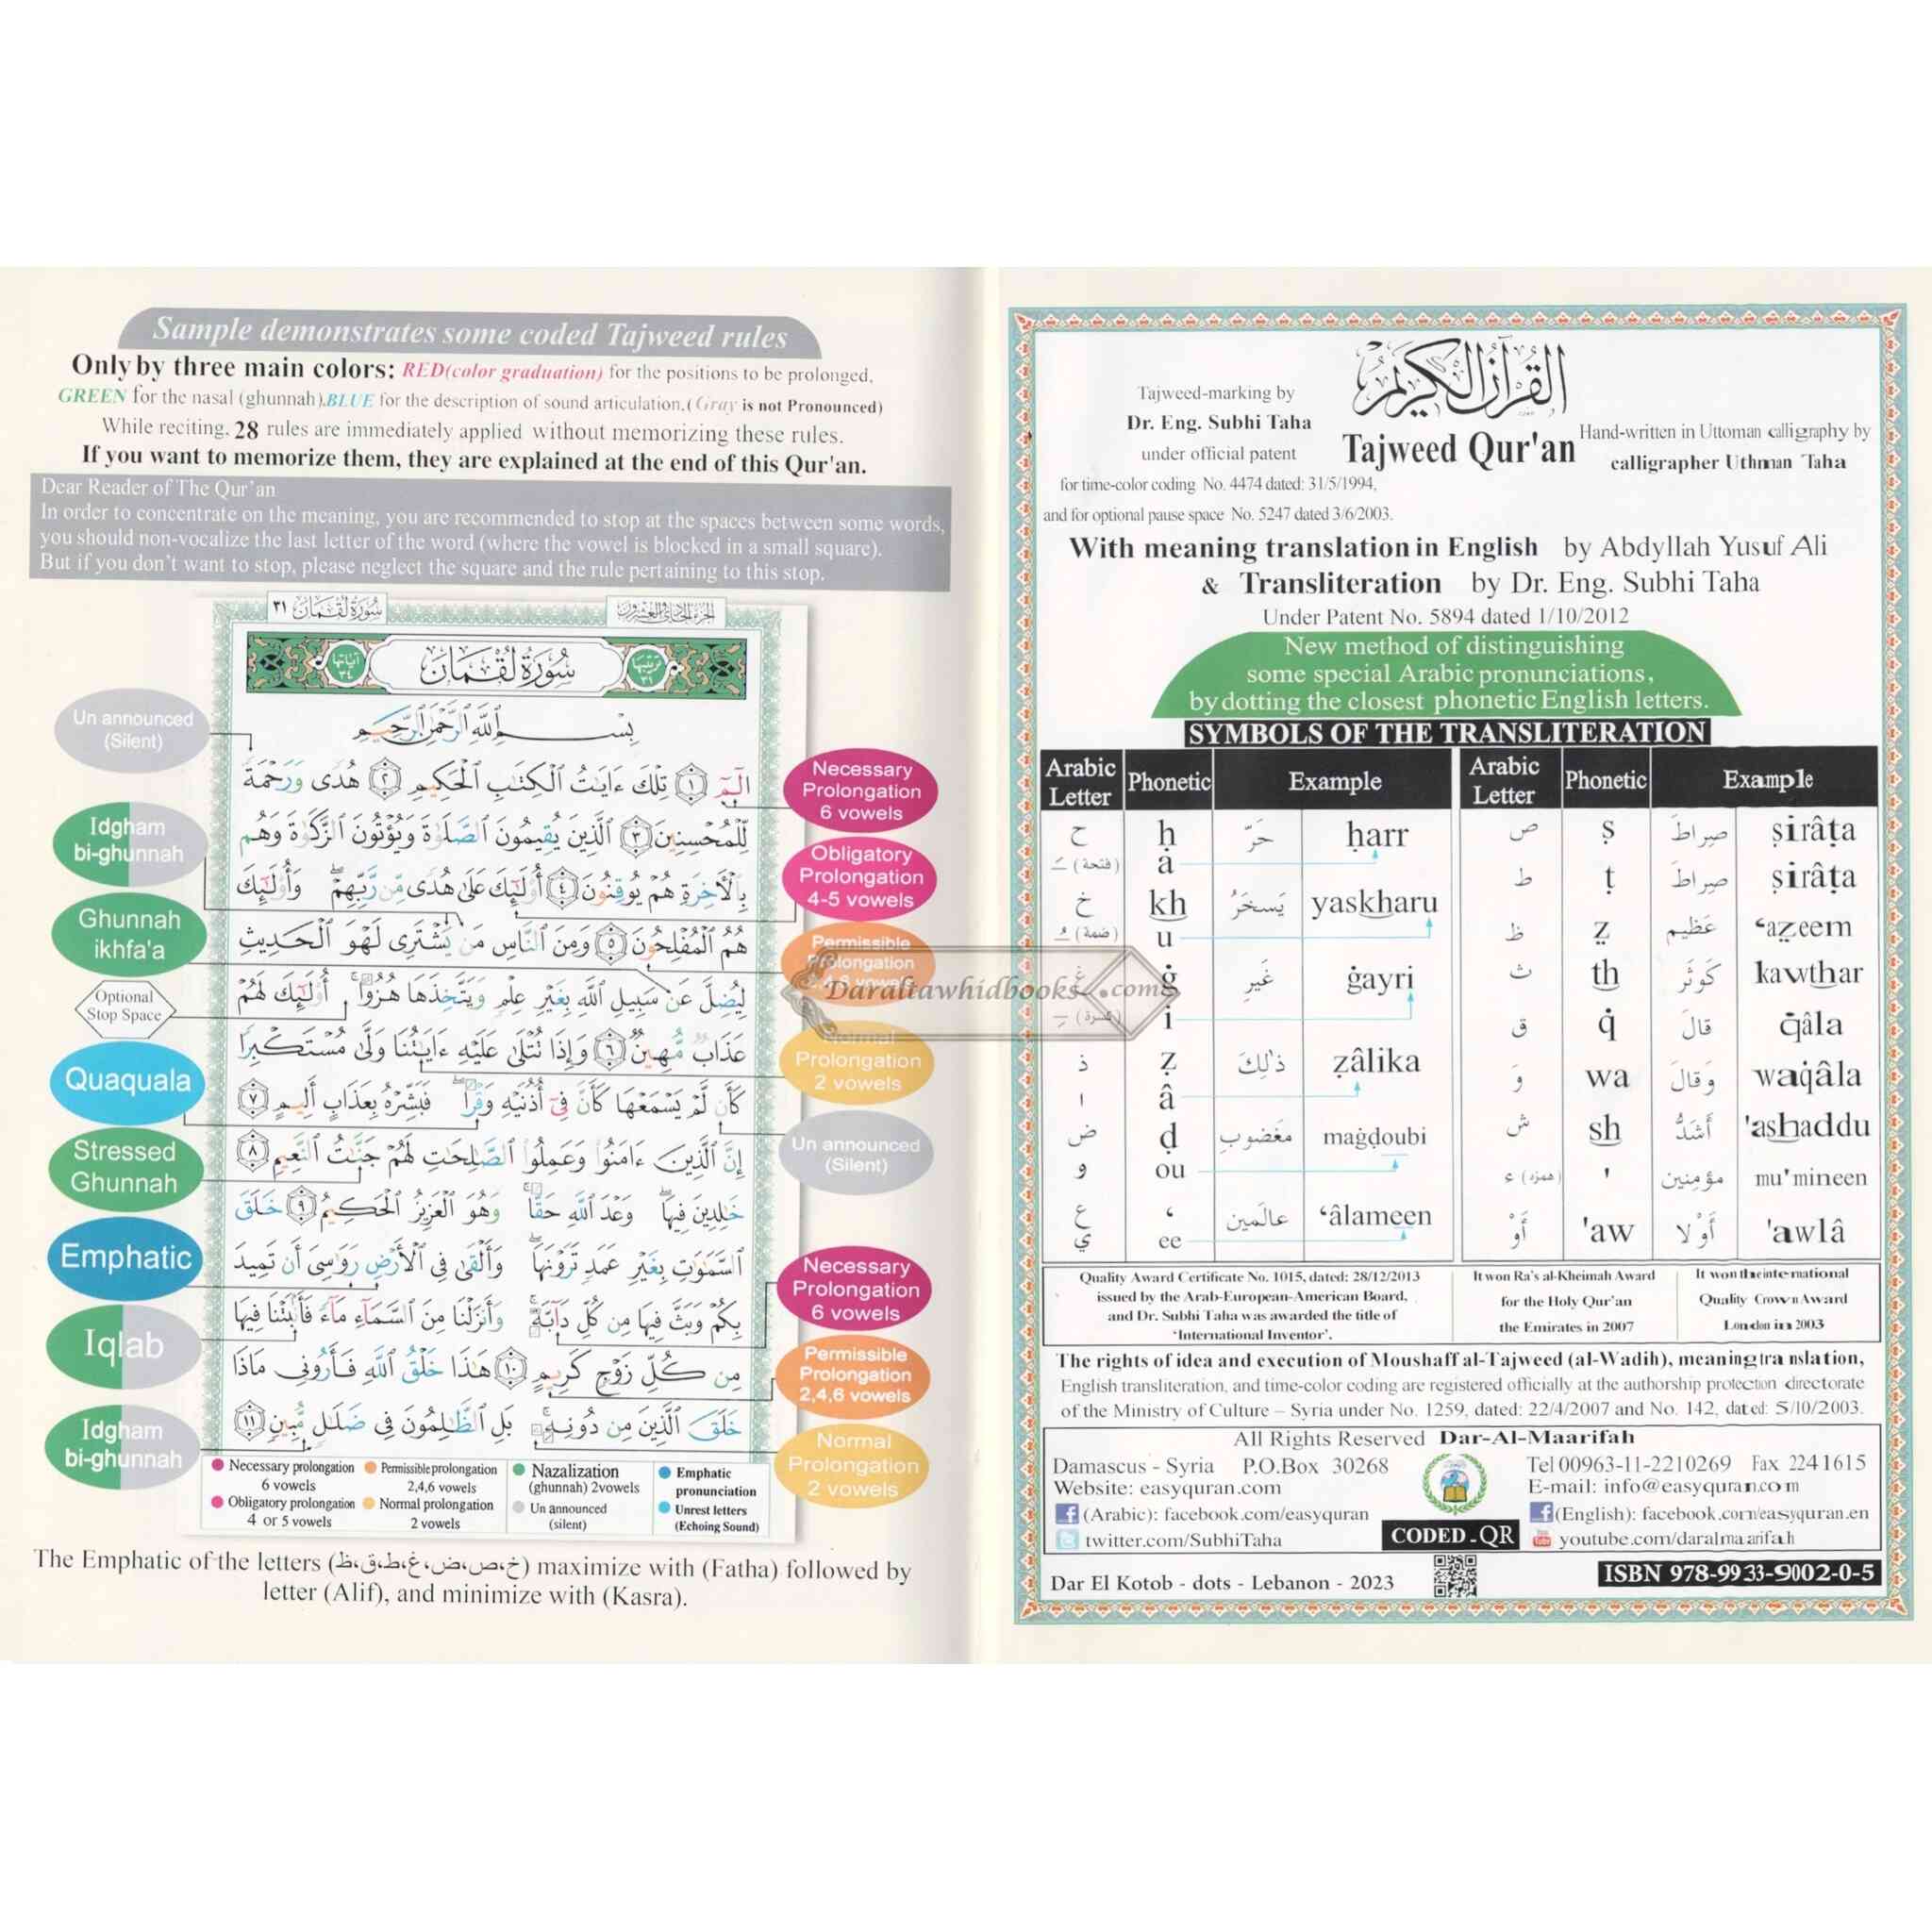 Sample demonstrates some coded Tajweed rules
Only by three main colors: RED(color graduation) for the positions to be prolonged,
GREEN for the nasal (ghunnah).BLUE for the description of sound articulation,( Gray is not Pronounced)
While reciting, 28 rules are immediately applied without memorizing these rules.
If you want to memorize them, they are explained at the end of this Qur'an.
Dear Reader of The Qur'an
In order to concentrate on the meaning, you are recommended to stop at the spaces between some words,
you should non-vocalize the last letter of the word (where the vowel is blocked in a small square).
But if you don't want to stop, please neglect the square and the rule pertaining to this stop.
سُورَةُ لُقْمَان ٣١
الجزء الحادي والعشرون
آياتها ٣٤
سُورَةُ لُقْمَان
ترتيبها ٣١
بِسْمِ اللَّهِ الرَّحْمَٰنِ الرَّحِيمِ
الٓمٓ ١ تِلْكَ ءَايَٰتُ الْكِتَٰبِ الْحَكِيمِ ٢ هُدًى وَرَحْمَةً
لِّلْمُحْسِنِينَ ٣ الَّذِينَ يُقِيمُونَ الصَّلَوٰةَ وَيُؤْتُونَ الزَّكَوٰةَ وَهُم
بِالْأَخِرَةِ هُمْ يُوقِنُونَ ٤ أُوْلَٰٓئِكَ عَلَىٰ هُدًى مِّن رَّبِّهِمْ وَأُوْلَٰٓئِكَ
هُمُ الْمُفْلِحُونَ ٥ وَمِنَ النَّاسِ مَن يَشْتَرِى لَهْوَ الْحَدِيثِ
لِيُضِلَّ عَن سَبِيلِ اللَّهِ بِغَيْرِ عِلْمٍ وَيَتَّخِذَهَا هُزُوًا أُوْلَٰٓئِكَ لَهُمْ
عَذَابٌ مُّهِينٌ ٦ وَإِذَا تُتْلَىٰ عَلَيْهِ ءَايَٰتُنَا وَلَّىٰ مُسْتَكْبِرًا
كَأَن لَّمْ يَسْمَعْهَا كَأَنَّ فِىٓ أُذُنَيْهِ وَقْرًا فَبَشِّرْهُ بِعَذَابٍ أَلِيمٍ ٧
إِنَّ الَّذِينَ ءَامَنُوا وَعَمِلُوا الصَّٰلِحَٰتِ لَهُمْ جَنَّٰتُ النَّعِيمِ ٨
خَٰلِدِينَ فِيهَا وَعْدَ اللَّهِ حَقًّا وَهُوَ الْعَزِيزُ الْحَكِيمُ ٩ خَلَقَ
السَّمَٰوَٰتِ بِغَيْرِ عَمَدٍ تَرَوْنَهَا وَأَلْقَىٰ فِى الْأَرْضِ رَوَٰسِىَ أَن تَمِيدَ
بِكُمْ وَبَثَّ فِيهَا مِن كُلِّ دَآبَّةٍ وَأَنزَلْنَا مِنَ السَّمَآءِ مَآءً فَأَنۢبَتْنَا فِيهَا
مِن كُلِّ زَوْجٍ كَرِيمٍ ١٠ هَٰذَا خَلْقُ اللَّهِ فَأَرُونِى مَاذَا
خَلَقَ الَّذِينَ مِن دُونِهِ بَلِ الظَّٰلِمُونَ فِى ضَلَٰلٍ مُّبِينٍ ١١
Un announced
(Silent)
Idgham
bi-ghunnah
Ghunnah
ikhfa'a
Optional
Stop Space
Quaquala
Stressed
Ghunnah
Emphatic
Iqlab
Idgham
bi-ghunnah
Necessary
Prolongation
6 vowels
Obligatory
Prolongation
4-5 vowels
Permissible
Prolongation
Normal
Prolongation
2 vowels
Un announced
(Silent)
Necessary
Prolongation
6 vowels
Permissible
Prolongation
2,4,6 vowels
Normal
Prolongation
2 vowels
Necessary prolongation
6 vowels
Permissible prolongation
2,4,6 vowels
Nazalization
(ghunnah) 2vowels
Emphatic
pronunciation
Obligatory prolongation
4 or 5 vowels
Normal prolongation
2 vowels
Un announced
(silent)
Unrest letters
(Echoing Sound)
The Emphatic of the letters (خ،ص،ض،غ،ط،ق،ظ) maximize with (Fatha) followed by
letter (Alif), and minimize with (Kasra).
Daraltawhidbooks.com
القرآن الكريم
Tajweed Qur'an
Tajweed-marking by
Dr. Eng. Subhi Taha
under official patent
for time-color coding No. 4474 dated: 31/5/1994,
and for optional pause space No. 5247 dated 3/6/2003.
Hand-written in Uttoman calligraphy by
calligrapher Uthman Taha
With meaning translation in English by Abdyllah Yusuf Ali
& Transliteration by Dr. Eng. Subhi Taha
Under Patent No. 5894 dated 1/10/2012
New method of distinguishing
some special Arabic pronunciations,
by dotting the closest phonetic English letters.
SYMBOLS OF THE TRANSLITERATION
Arabic Letter Phonetic Example Arabic Letter Phonetic Example
ح ḥ حَرّ ḥarr ص ṣ صِراطَ ṣirâṭa
(فتحة) ـَ a
ط ṭ صِراطَ ṣirâṭa
خ kh يَسخَرُ yaskharu
(ضمة) ـُ u
ظ ẓ عَظيم ‘aẓeem
غ ġ غَيرِ ġayri
(كسرة) ـِ i
ث th كَوثَر kawthar
ق q̇ قالَ q̇âla
ذ ẓ ذٰلِكَ ẓâlika
ا â
وَ wa وَقالَ waq̇âla
ض ḍ مغضوبِ maġḍoubi
ش sh أَشَدُّ 'ashaddu
و ou
(همزة) ء ' مؤمنين mu'mineen
ع ‘ عالَمين ‘âlameen
ي ee
أَوْ 'aw أَوْلا 'awlâ
Quality Award Certificate No. 1015, dated: 28/12/2013
issued by the Arab-European-American Board,
and Dr. Subhi Taha was awarded the title of
'International Inventor'.
It won Ra's al-Kheimah Award
for the Holy Qur'an
the Emirates in 2007
It won the international
Quality Crown Award
London in 2003
The rights of idea and execution of Moushaff al-Tajweed (al-Wadih), meaning translation,
English transliteration, and time-color coding are registered officially at the authorship protection directorate
of the Ministry of Culture – Syria under No. 1259, dated: 22/4/2007 and No. 142, dated: 5/10/2003.
All Rights Reserved Dar-Al-Maarifah
Damascus - Syria P.O.Box 30268
Tel 00963-11-2210269 Fax 2241615
Website: easyquran.com
E-mail: info@easyquran.com
f (Arabic): facebook.com/easyquran
f (English): facebook.com/easyquran.en
twitter.com/SubhiTaha
CODED - QR
youtube.com/daralmaarifah
Dar El Kotob - dots - Lebanon - 2023
ISBN 978-9933-9002-0-5